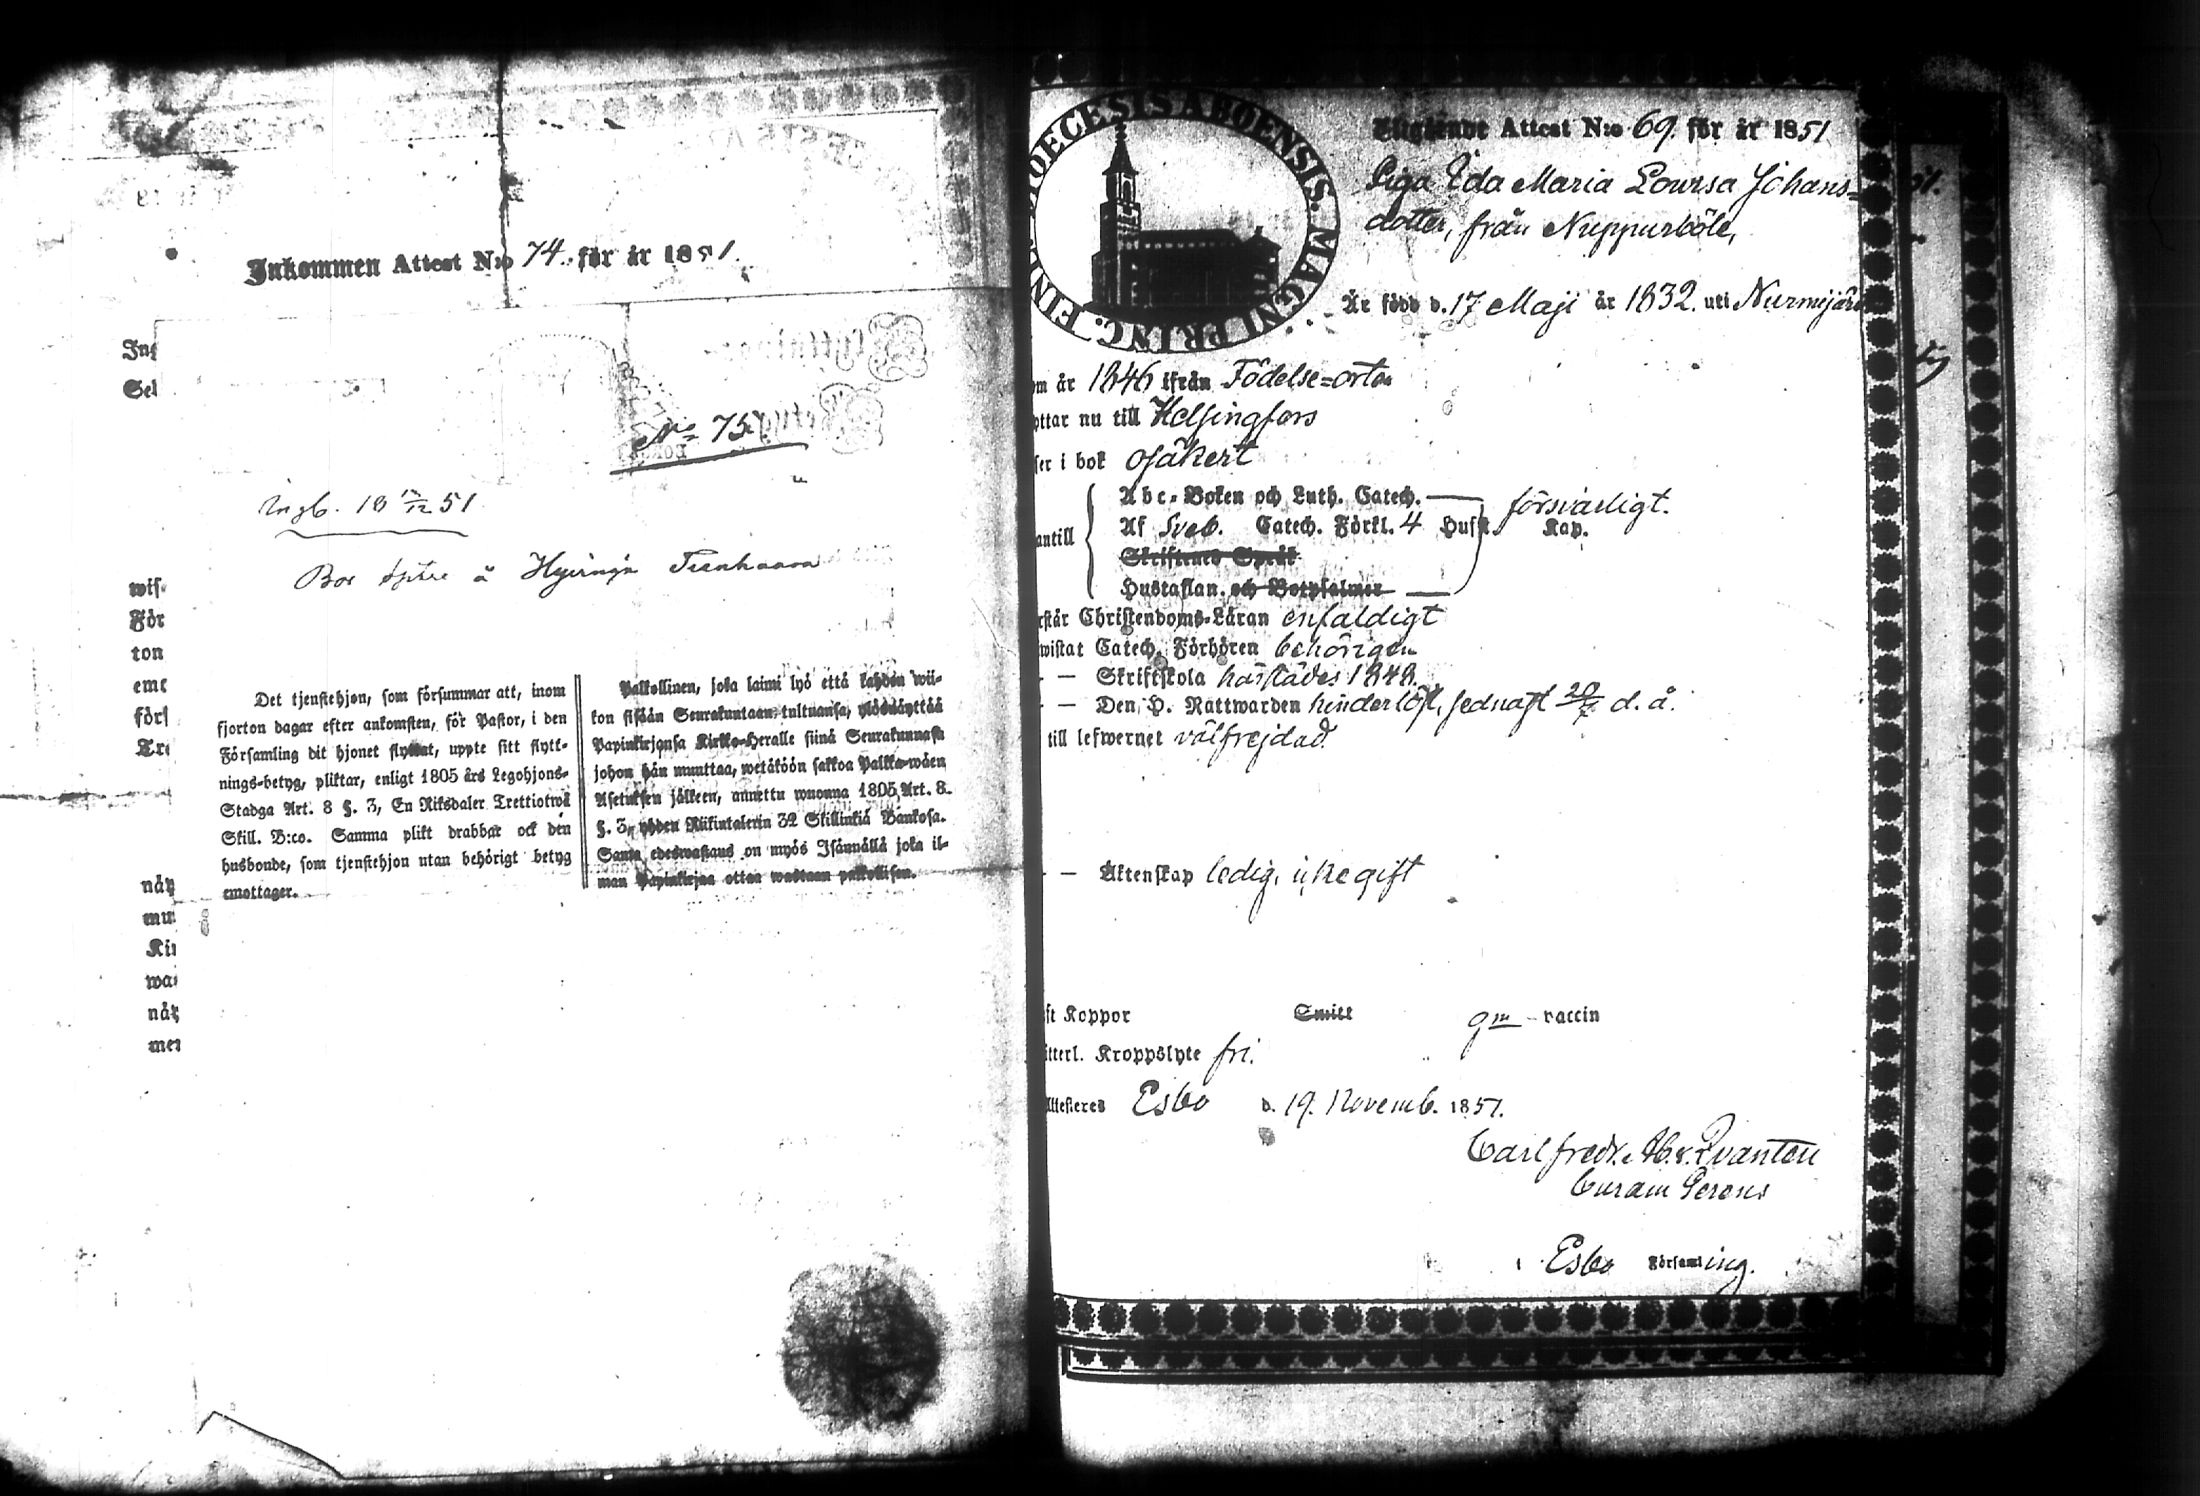 Inkommen Attest N:o 74. för år 1851.
Ing
Sel
No 75.
Ingb. 18 17/12 51
Bor
wis
För
ton
eme
förs
Tre
Det tjenstehjon, som försummar att, inom
fjorton dagar efter ankomsten, för Pastor, i den
Församling dit hjonet flyttat, uppte sitt flytt-
nings-betyg, pliktar, enligt 1805 års Legohjons-
Stadga Art. 8 §. 3, En Riksdaler Trettiotwå
Skill. B:co. Samma plikt drabbar ock den
husbonde, som tjenstehjon utan behörigt betyg
emottager.
Palkollinen, joka laimi lyö että kahden wii-
kon sisään Seurakuntaan tultuansa, ylösnäyttää
Papinkirjansa Kirkko-Heralle siinä Seurakunnassa
johon hän muuttaa, wetäköön sakkoa Palkka-wäen
Asetuksen jälkeen, annettu wuonna 1805, Art. 8.
§. 3, yhden Riikintalerin 32 Skillinkiä Bankosa.
Sama edeswastaus on myös Isännällä joka il-
man Papinkirjaa ottaa wastaan palkollisen.
näy
mu
Kir
wa
näy
mer
FINL. DIOECESIS ABOENSIS. MAGNI PRINC.
Utgående Attest N:o 69. för år 1851
Piga Eda Maria Lovisa Johans=
dotter, från Nuppurböle,
Är född d. 17 Maji år 1832. uti Nurmijär
om år 1846 ifrån Födelse=orten
yttar nu till Helsingfors
ser i bok osäkert
antill
Abc-Boken och Luth. Catech.
Af Sveb. Catech. Förkl. 4 Hufst. Kap.
försvarligt.
Skriftenes Språk
Hustaflan. och Botpsalmer
rstår Christendoms-Läran enfaldigt
wistat Catech. Förhören behörigen
— — Skriftskola härstädes 1848.
— — Den H. Nattwarden hinderlöst, sednast 20/7 d. å.
till lefwernet välfrejdad.
— — Äktenskap ledig, icke gift
st Koppor Smitt gm vaccin
itterl. Kroppslyte fri.
Attesteres Esbo d. 19. Novemb. 1851.
Carl Fredr. Ab. v. Qvanten
Curam Gerens
i Esbo Församling.